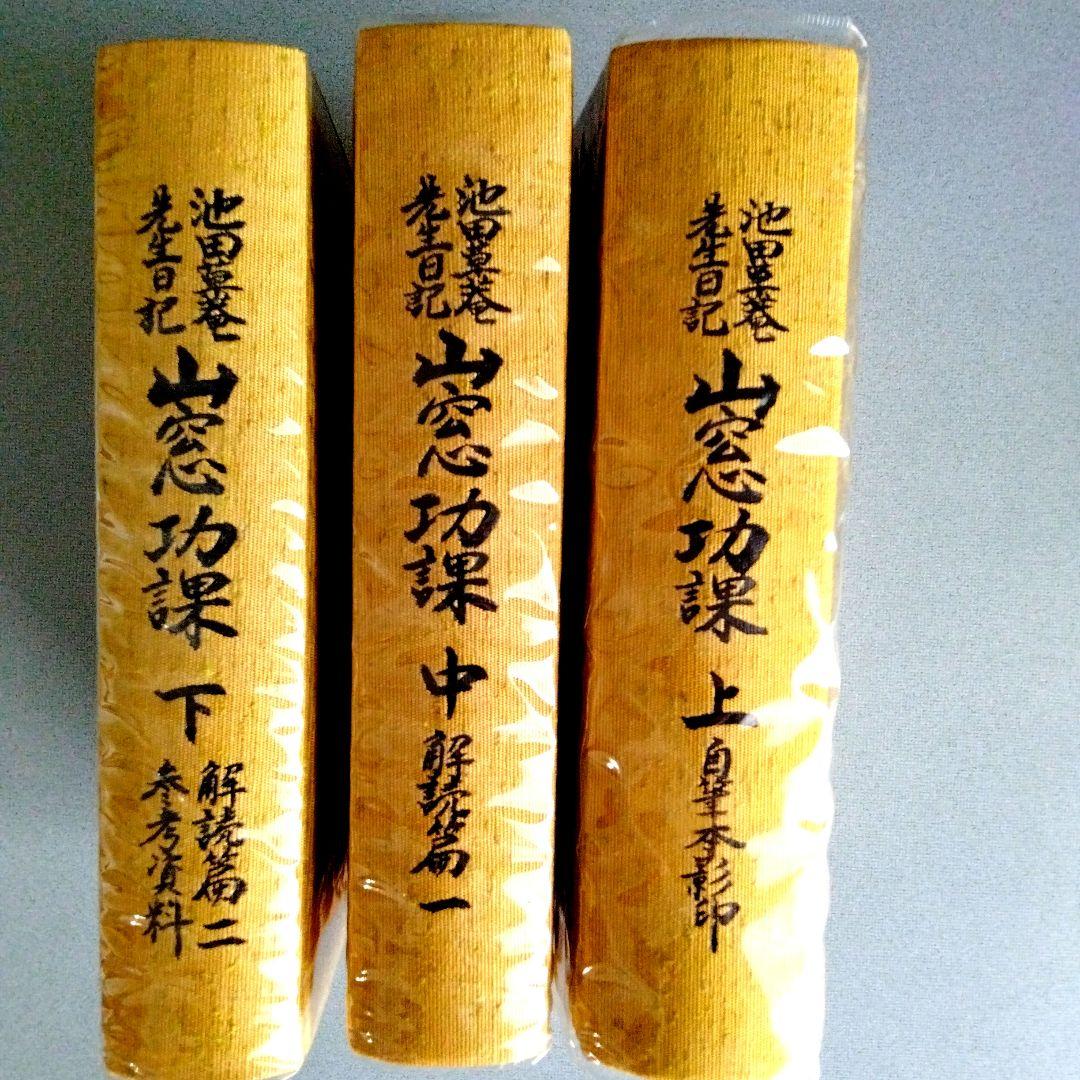 池田草菴
先生日記
山窓功課
上
自筆本影印
池田草菴
先生日記
山窓功課
中
解読篇一
池田草菴
先生日記
山窓功課
下
解読篇二
参考資料